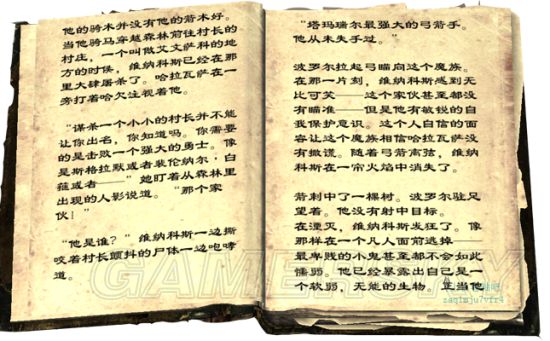 他的骑术并没有他的箭术好。
当他骑马穿越森林前往村长的
村庄，一个叫做艾文萨科的地
方的时候，维纳科斯已经在那
里大肆屠杀了。哈拉瓦萨在一
旁打着哈欠注视着他。
“谋杀一个小小的村长并不能
让你出名，你知道吗。你需要
的是击败一个强大的勇士。像
是斯格拉默或者裴伦纳尔·白
蔹或者——”她盯着从森林里
出现的人影说道。“那个家
伙！”
“他是谁？”维纳科斯一边撕
咬着村长颤抖的尸体一边咆哮
道。
“塔玛瑞尔最强大的弓箭手。
他从未失手过。”
波罗尔拉起弓瞄向这个魔族。
在那一片刻，维纳科斯感到无
比可笑——这个家伙甚至都没
有瞄准——但是他有敏锐的自
我保护意识。这个人自信的面
容让这个魔族相信哈拉瓦萨没
有撒谎。随着弓箭离弦，维纳
科斯在一帘火焰中消失了。
箭刺中了一棵树。波罗尔驻足
望着。他没有射中目标。
在湮灭，维纳科斯发狂了。像
那样在一个凡人面前逃掉——
最卑贱的小鬼甚至都不会如此
懦弱。他已经暴露出自己是一
个软弱，无能的生物。正当他
GAMERSKY
zaqtmju7vfr4